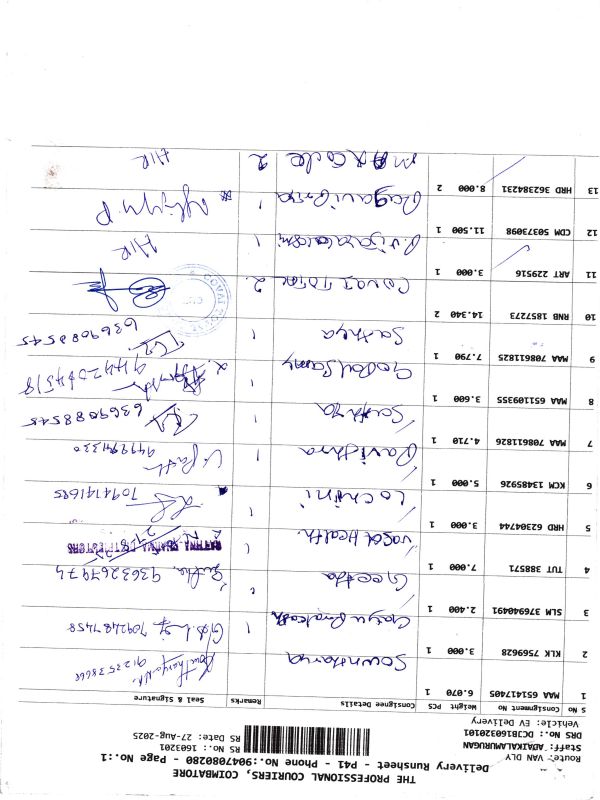 THE PROFESSIONAL COURIERS, COIMBATORE
Delivery Runsheet - P41 - Phone No.:9047080280 - Page No.:1
Route: VAN DLY
Staff: ADAIKALAMURUGAN RS No.: 1603201
DRS No.: DCTB1603201O1 RS Date: 27-Aug-2025
Vehicle: EV Delivery
S No Consignment No Weight PCS Consignee Details Remarks Seal & Signature
1 MAA 651417405 6.070 1 Sowndarya
2 KLK 7569628 3.000 1 Gayu Prakash 1 7092487458
3 SLM 376940491 2.400 1 Geetha 9363267974
4 TUT 388571 7.000 1 Vasa Health
5 HRD 62304744 3.000 1 Lochini 1 7094141695
6 KCM 13485926 5.000 1 Pavithra 1
7 MAA 708611826 4.710 1 Sathya 1 6369088545
8 MAA 651109355 3.600 1 Gopal Samy
9 MAA 708611825 7.790 1 Sathya 1 6369088545
10 RNB 1857273 14.340 2 2
11 ART 229516 3.000 1 1 AIR
12 CDM 50373098 11.500 1 Ragavi Priya 1
13 HRD 362384231 8.000 2 2 AIR